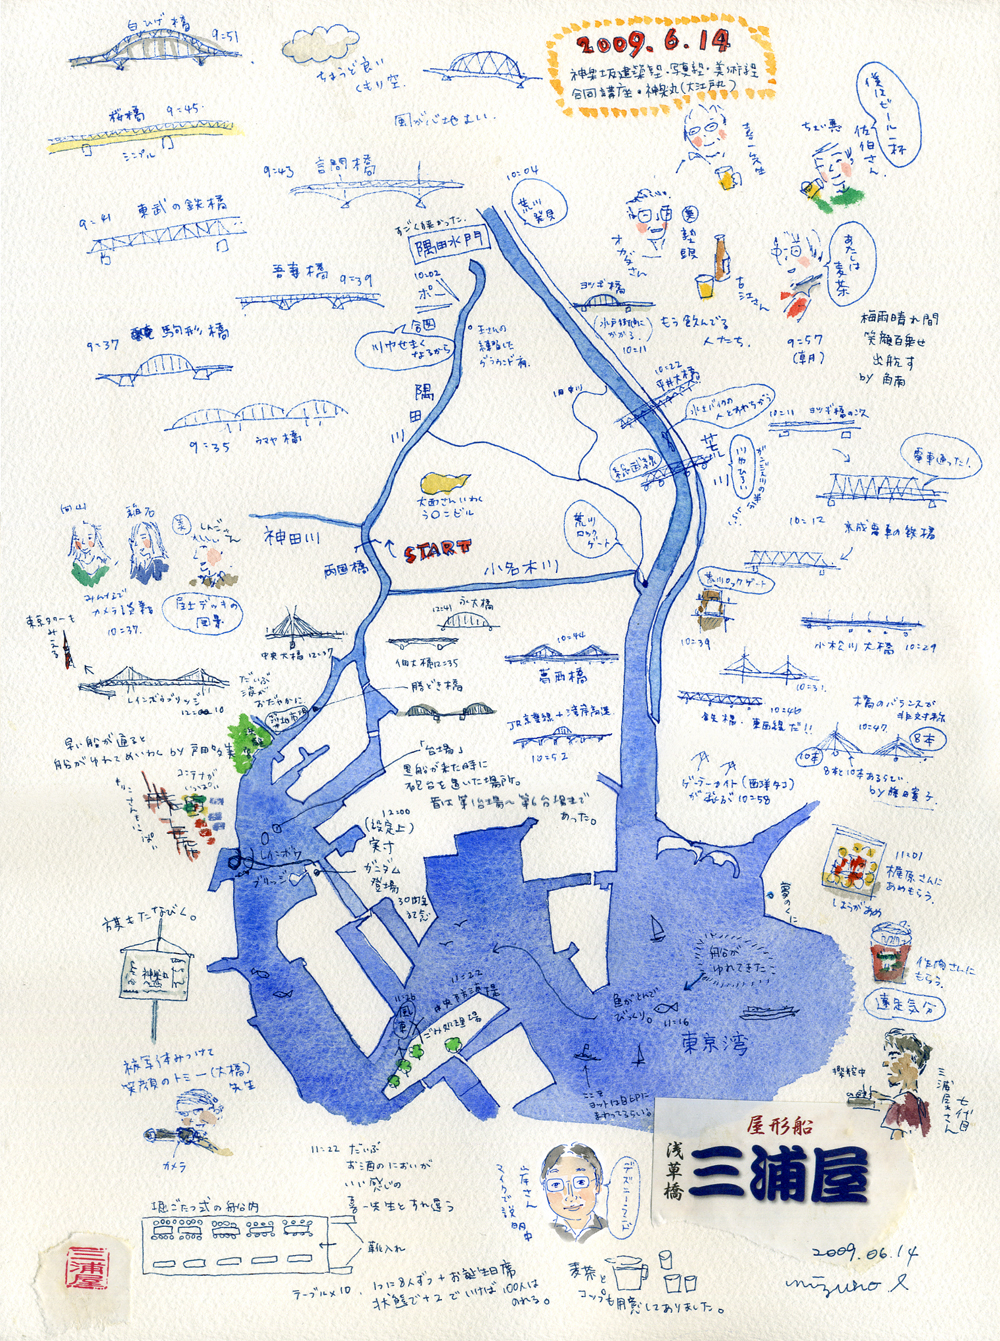 白ひげ橋
9=51
ちょうど良い
くもり空。
2009.6.14
神楽坂建築塾・写真塾・美術塾
合同講座・神楽丸(大江戸丸)
僕はビール一杯
桜橋 9=45.
シンプル
風が心地よい。
喜一先生
ちょい悪
佐伯さん
9=43 言問橋
10=04
荒川
発見
東武の鉄橋
9=41
すごく狭かった。
隅田水門
オカダさん
美
塾頭
古江さん
あたしは
麦茶
吾妻橋 9=39
10=02
ヨツギ橋
(水戸街道に
かかる。)
10=11
もう飲んでる
人たち。
9=57
(朝)
梅雨晴れ間
笑顔百乗せ
出航す
by 角南
駒形橋
9=37
川巾せまく
なるから
隅
田
川
10=22
平井大橋
旧中川
水上バイクの
人とすれちがう
10=11 ヨツギ橋の次
9=35 ウマヤ橋
総武線
荒
川
川巾ひろい
電車通った!
10=12 京成電車の鉄橋
大西さんいわく
うロコビル
荒川
ロック
ゲート
神田川
START
両国橋
小名木川
美
みんなで
カメラ談義
10=37.
屋上デッキの
風景
荒川ロックゲート
10=39
小松川大橋 10=29
東京タワーも
みえる
中央大橋
12=41 永大橋
佃大橋 12=35
勝どき橋
10=44
葛西橋
10=31.
レインボウブリッジ
だいぶ
波が
おだやかに
築地市場
JR京葉線+湾岸高速
10=52
10=46
鉄橋・東西線だ!!
橋のバランスが
非対称
10=47.
10本
8本
早い船が通ると
船がゆれてめいわく by 戸田
浜離宮
「台場」
黒船が来た時に
砲台を置いた場所。
昔は第1台場〜第6台場まで
あった。
ゲーラーカイト(西洋タコ)
があそぶ 10=58
コンテナが
いっぱい
12=00
(設定上)
実寸
ガンダム
登場
30周年
記念
レインボウ
ブリッジ
11=01
梶原さんに
あめもらう。
しょうがあめ
夢のくに
旗もたなびく。
船が
ゆれてきた
11=22
中央防波堤
ごみ処理場
11=26
風車
魚がとんで
びっくり。 11=16
東京湾
もらう。
遠足気分
被写体みつけて
笑顔のトミー(大橋)
先生
カメラ
ここで
操舵中
三浦屋さん
七代目
屋形船
浅草橋
三浦屋
11=22 だいぶ
お酒のにおいが
いい感じの
喜一先生とすれ違う
マイクで説明中
掘ごたつ式の船内
靴入れ
三浦屋
テーブル×10. 1つに8人ずつ+お誕生日席
状態で+2でいけば100人は
のれる。
麦茶と
コップも用意してありました。
2009.06.14
mizuno